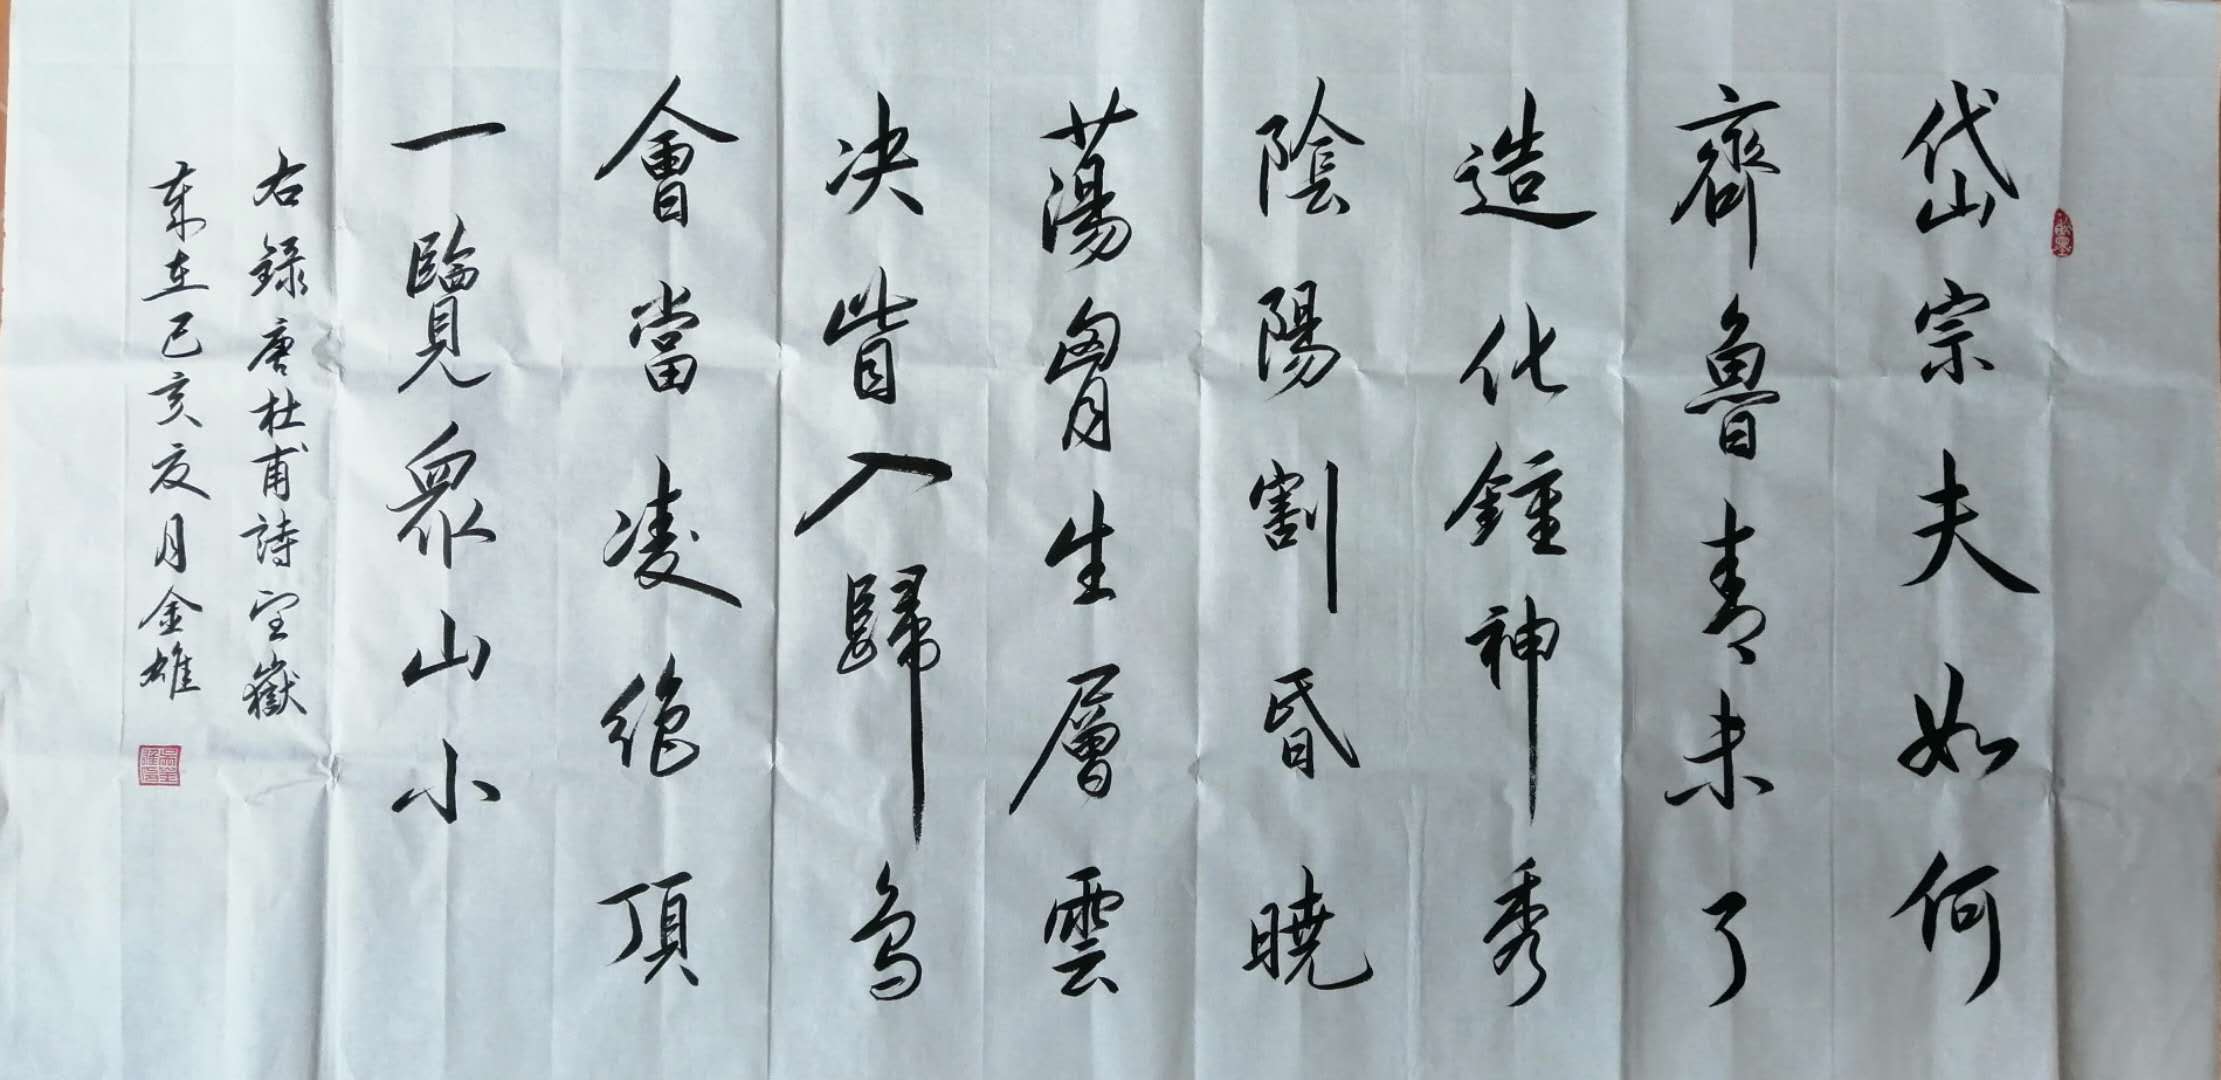 岱宗夫如何
齊魯青未了
造化鍾神秀
陰陽割昏曉
蕩胷生層雲
决眥入歸鳥
會當凌絶頂
一覽衆山小
右録唐杜甫詩望嶽
歲在己亥夏月金雄